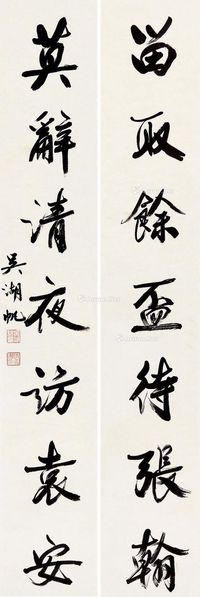 留取餘盃待張翰
莫辭清夜訪袁安
吳湖帆